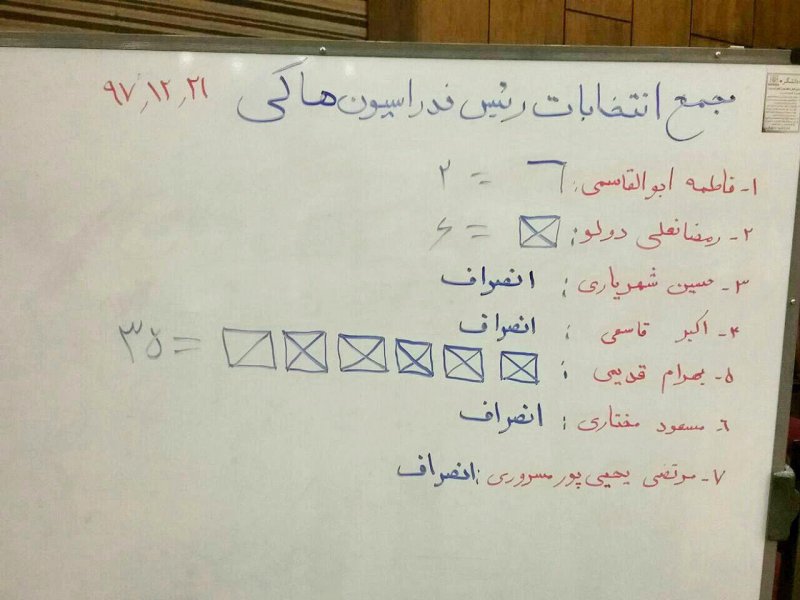 مجمع انتخابات رئیس فدراسیون هاکی ۹۷٫۱۲٫۲۱
۱- فاطمه ابوالقاسمی: = ۲
۲- رمضانعلی دولو: = ۶
۳- حسین شهریاری: انصراف
۴- اکبر قاسمی: انصراف
۵- بهرام قدیمی: = ۳۵
۶- مسعود مختاری: انصراف
۷- مرتضی یحیی پور مسروری: انصراف